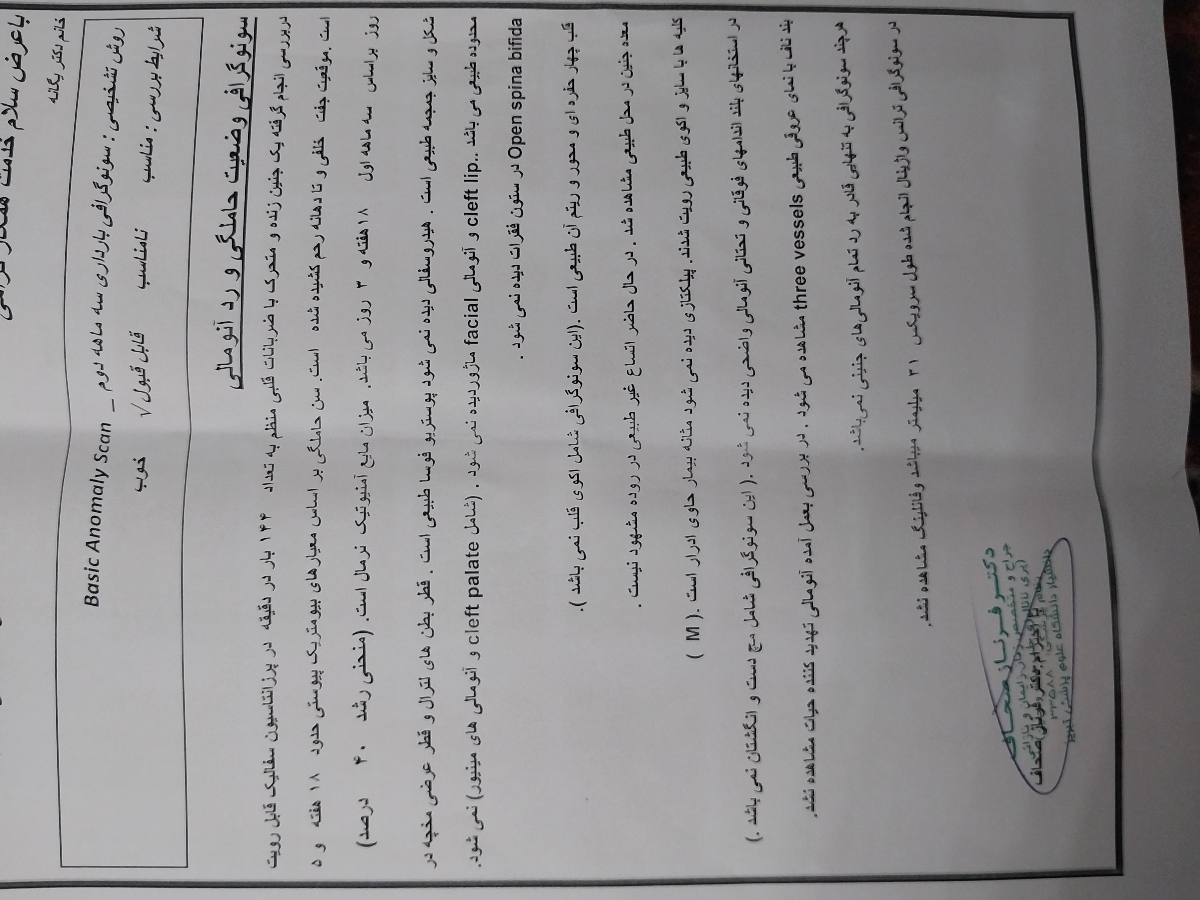 باعرض سلام خدمت همکار گرامی
خانم دکتر یگانه
روش تشخیصی : سونوگرافی بارداری سه ماهه دوم _ Basic Anomaly Scan
شرایط بررسی : مناسب نامناسب قابل قبول√ خوب
سونوگرافی وضعیت حاملگی و رد آنومالی
دربررسی انجام گرفته یک جنین زنده و متحرک با ضربانات قلبی منظم به تعداد ۱۴۴ بار در دقیقه در پرزانتاسیون سفالیک قابل رویت
است .موقعیت جفت خلفی و تا دهانه رحم کشیده شده است. سن حاملگی بر اساس معیارهای بیومتریک پیوستی حدود ۱۸ هفته و ۵
روز براساس سه ماهه اول ۱۸هفته و ۳ روز می باشد. میزان مایع آمنیوتیک نرمال است. (منحنی رشد ۴۰ درصد)
شکل و سایز جمجمه طبیعی است . هیدروسفالی دیده نمی شود پوستریو فوسا طبیعی است . قطر بطن های لترال و قطر عرضی مخچه در
محدوده طبیعی می باشد ..cleft lip و آنومالی facial ماژوردیده نمی شود . (شامل cleft palate و آنومالی های مینیور) نمی شود.
Open spina bifida در ستون فقرات دیده نمی شود .
قلب چهار حفره ای و محور و ریتم آن طبیعی است .(این سونوگرافی شامل اکوی قلب نمی باشد ).
معده جنین در محل طبیعی مشاهده شد . در حال حاضر اتساع غیر طبیعی در روده مشهود نیست .
کلیه ها با سایز و اکوی طبیعی رویت شدند. پیلکتازی دیده نمی شود مثانه بیمار حاوی ادرار است .( M )
در استخانهای بلند اندامهای فوقانی و تحتانی آنومالی واضحی دیده نمی شود .( این سونوگرافی شامل مچ دست و انگشتان نمی باشد .)
بند ناف با نمای عروقی طبیعی three vessels مشاهده می شود . در بررسی بعمل آمده آنومالی تهدید کننده حیات مشاهده نشد.
هرچند سونوگرافی به تنهایی قادر به رد تمام آنومالی‌های جنینی نمی‌باشد.
در سونوگرافی ترانس واژینال انجام شده طول سرویکس ۳۱ میلیمتر میباشد وفانلینگ مشاهده نشد.
دکتر فرناز صحاف
جراح و متخصص زنان زایمان و نازائی
با احترام دکتر فرناز صحاف
دانشگاه علوم پزشکی تبریز